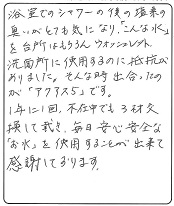 浴室でのシャワーの後の塩素の
臭いがとても気になり、「こんな水」
を台所はもちろん ウォシュレット、
洗面所に使用するのに抵抗が
ありました。そんな時出会ったの
が「アクアス5」です。
1年に1回、不在中でも多材交
換して載き、毎日安心安全な
「お水」を使用することが出来て
感謝しております。